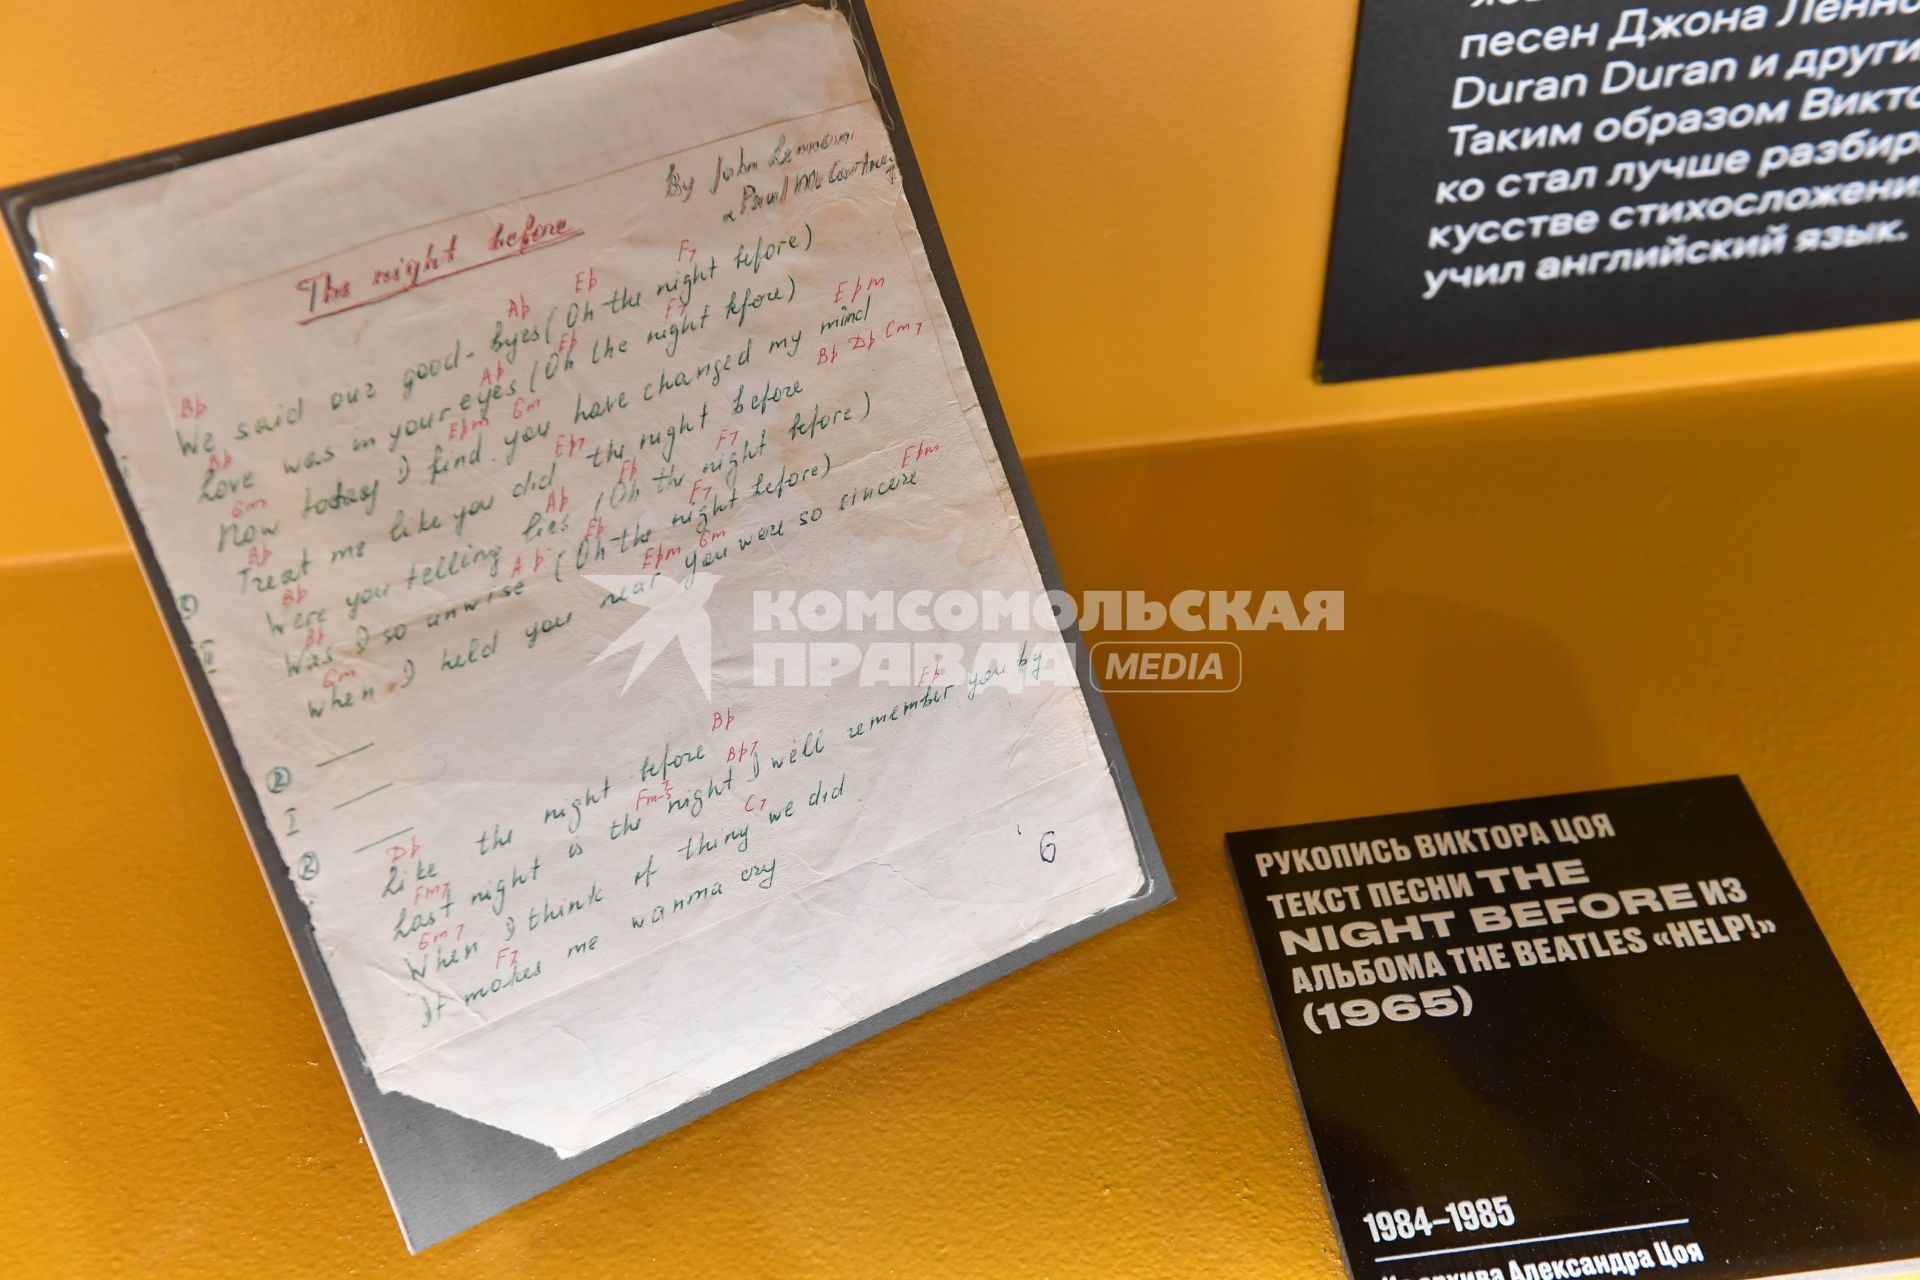 By John Lennon
& Paul McCartney
The night before
Ab Eb F7
We said our good-byes (Oh the night before)
Bb Ab Eb F7
Love was in your eyes (Oh the night before)
Bb Ebm
Now today I find you have changed my mind
Gm Ebm Gm Bb Db Cm7
Treat me like you did the night before
Bb Eb7 F7
Were you telling lies (Oh the night before)
Bb Ab Eb F7
Was I so unwise (Oh the night before)
Bb Ab Eb Ebm
When I held you near you were so sincere
Gm Ebm Gm
2
I
2
Bb
Like the night before
Db Bb7 Eb
Last night is the night I will remember you by
Fm7 C7
When I think of thing we did
Gm7
It makes me wanna cry
F7
6
песен Джона
Duran Duran и
Таким образом
ко стал лучше
кусстве
учил английский язык.
КОМСОМОЛЬСКАЯ
ПРАВДА MEDIA
РУКОПИСЬ ВИКТОРА ЦОЯ
ТЕКСТ ПЕСНИ THE
NIGHT BEFORE ИЗ
АЛЬБОМА THE BEATLES «HELP!»
(1965)
1984–1985
Из архива Александра Цоя